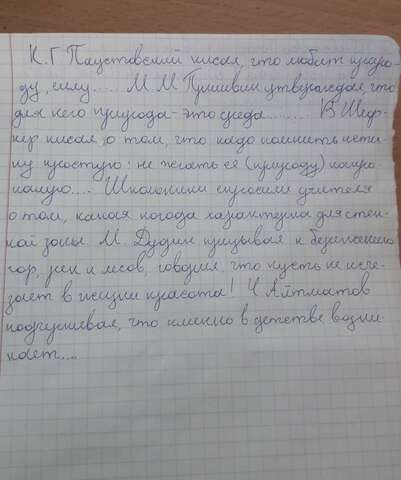 К. Г Паустовский писал, что любит приро-
ду, силу..... М. М Пришвин утверждал, что
для него природа - это среда......... В Шеф-
нер писал о том, что надо помнить исти-
ну простую: не желать её (природу) напро-
палую.... Школьники спросили учителя
о том, какая погода характерна для степ-
ной зоны. М. Дудин призывал к бережению
гор, рек и лесов, говоря, что пусть не исче-
зает в жизни красота! Ч Айтматов
подчёркивал, что именно в детстве возни-
кает....